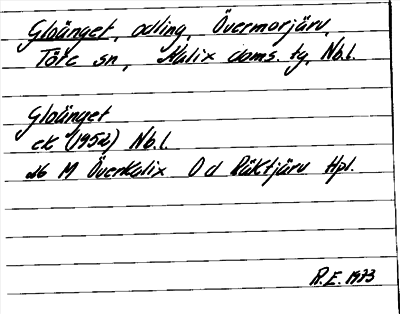 Gloänget, odling, Övermorjärv,
Töre sn, Kalix doms. tg, Nb.l.
Gloänget
ek (1952) Nb.l.
26 M Överkalix O d Räktjärv Hpl.
R.E. 1973